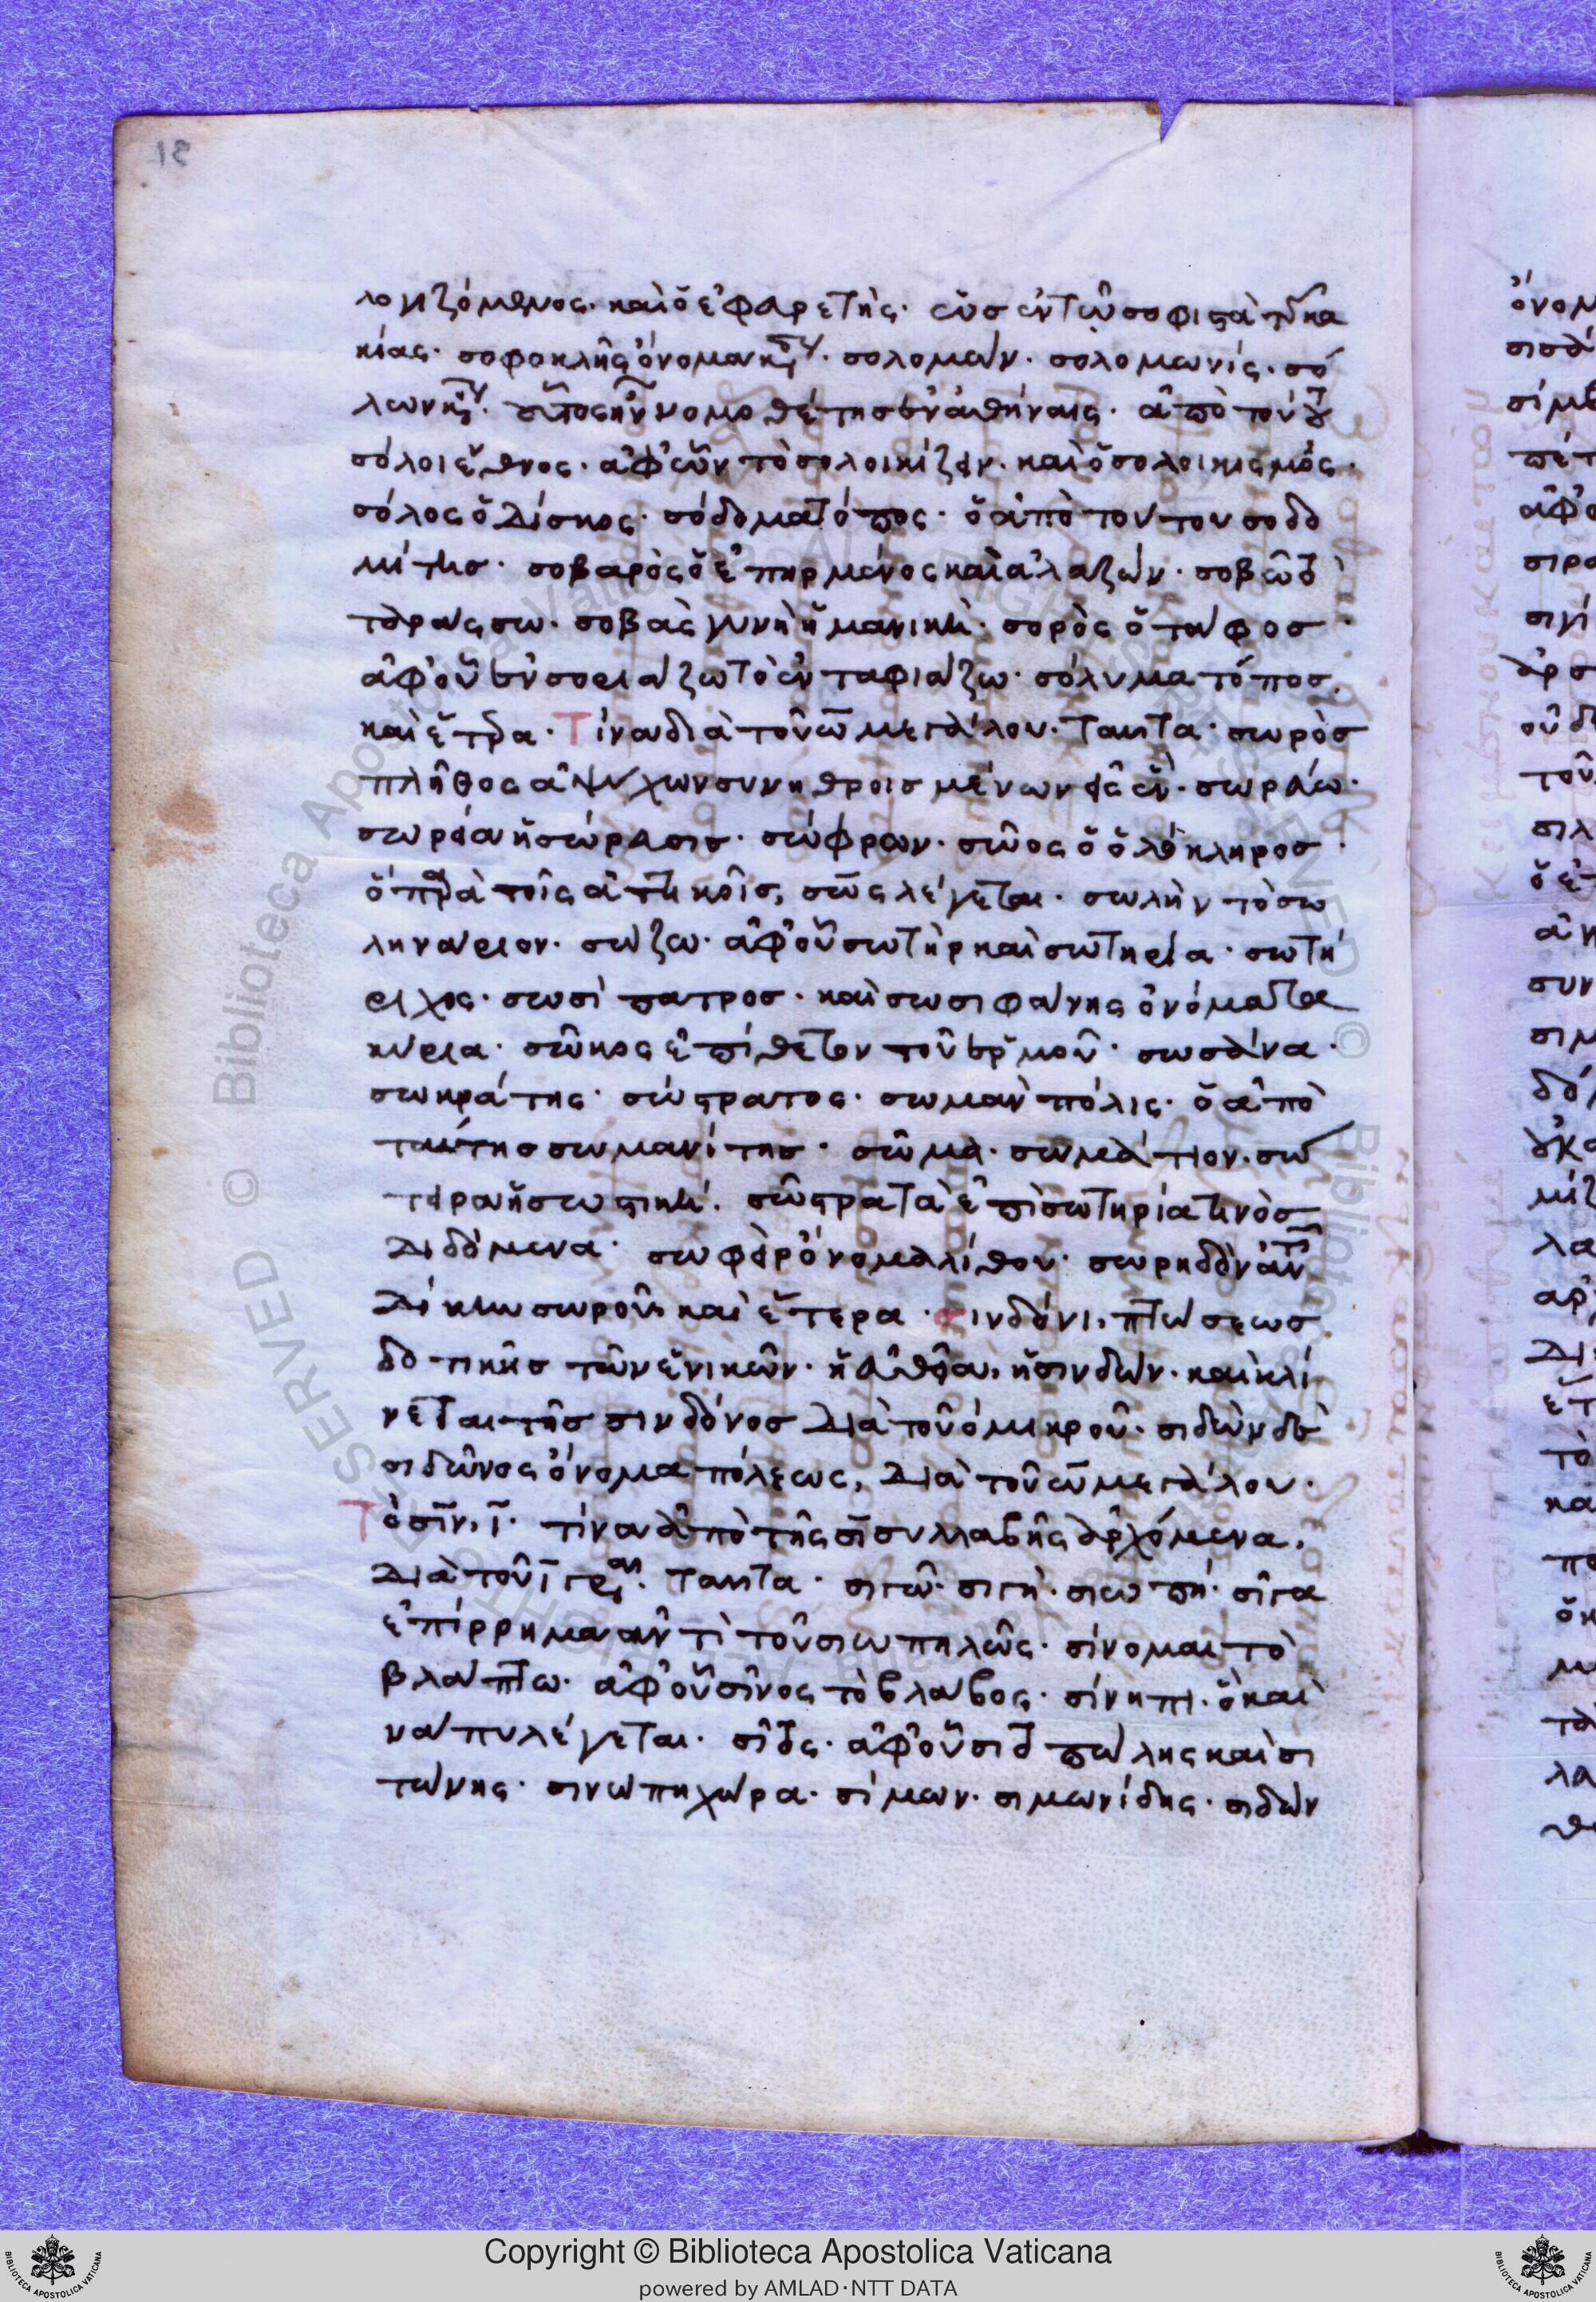 λογιζόμενος· καὶ ὁ ἐφευρετὴς· ὡς ἐν τῷ σοφιστὰ τῆς κα
κίας· σοφοκλῆς ὄνομα κύριον· σολομών· σολομωνίς· σό
λων κύριον· οὗτος ἦν νομοθέτης ἐν ἀθήναις· ἀπὸ τούτου
σόλοι ἔθνος· ἀφ' ὧν τὸ σολοικίζειν· καὶ ὁ σολοικισμός·
σόλος ὁ δίσκος· σόδομα τόπος· ὁ ἀπὸ τούτου σοδο
μίτης· σοβαρὸς ὁ ἐπηρμένος καὶ ἀλαζών· σοβῶ τὸ
ταράσσω· σοβὰς γυνὴ ἡ μανική· σορὸς ὁ τάφος·
ἀφ' οὗ ἐνσοριάζω τὸ ἐνταφιάζω· σόλυμα τόπος·
καὶ ἕτερα· Τίνα διὰ τοῦ ω μεγάλου· ταῦτα· σωρὸς
πλῆθος ἀψύχων συνηθροισμένων εἰς ἕν· σωρεύω·
σωρεία ἡ σώρευσις· σώφρων· σῶος ὁ ὁλόκληρος·
ὁ παρὰ τοῖς ἀττικοῖς, σῶς λέγεται· σωλὴν τὸ σω
ληνάριον· σώζω· ἀφ' οὗ σωτὴρ καὶ σωτηρία· σωτή
ριχος· σωσίπατρος· καὶ σωσιφάνης ὀνόματα
κύρια· σῶκος ἐπίθετον τοῦ ἑρμοῦ· σωσάνα·
σωκράτης· σώστρατος· σωμαν πόλις· ὁ ἀπὸ
ταύτης σωμανίτης· σῶμα· σωμάτιον· σώ
τειρα ἡ σωστική· σῶστρα τὰ ἐπὶ σωτηρία τινὸς
διδόμενα· σωφεὶρ ὄνομα λίθου· σωρηδὸν ἀντὶ τοῦ
δίκην σωροῦ, καὶ ἕτερα· σινδόνι, πτώσεως
δοτικῆς τῶν ἑνικῶν· ἡ εὐθεῖα, ἡ σινδών· καὶ κλί
νεται τῆς σινδόνος διὰ τοῦ ο μικροῦ· σιδὼν δὲ
σιδῶνος ὄνομα πόλεως, διὰ τοῦ ω μεγάλου·
Τὸ σιν, ι· τίνα ἀπὸ τῆς σι συλλαβῆς ἀρχόμενα,
διὰ τοῦ ι γράφεται· ταῦτα· σιγῶ· σιγή· σιωπή· σῖγα
ἐπίρρημα ἀντὶ τοῦ σιωπηλῶς· σίνομαι τὸ
βλάπτω· ἀφ' οὗ σῖνος τὸ βλάβος· σίνηπι· ὃ καὶ
νάπυ λέγεται· σῖτος· ἀφ' οὗ σιτοπώλης καὶ σι
τώνης· σινώπη χώρα· σίμων· σιμωνίδης· σιδών
Copyright © Biblioteca Apostolica Vaticana
powered by AMLAD·NTT DATA